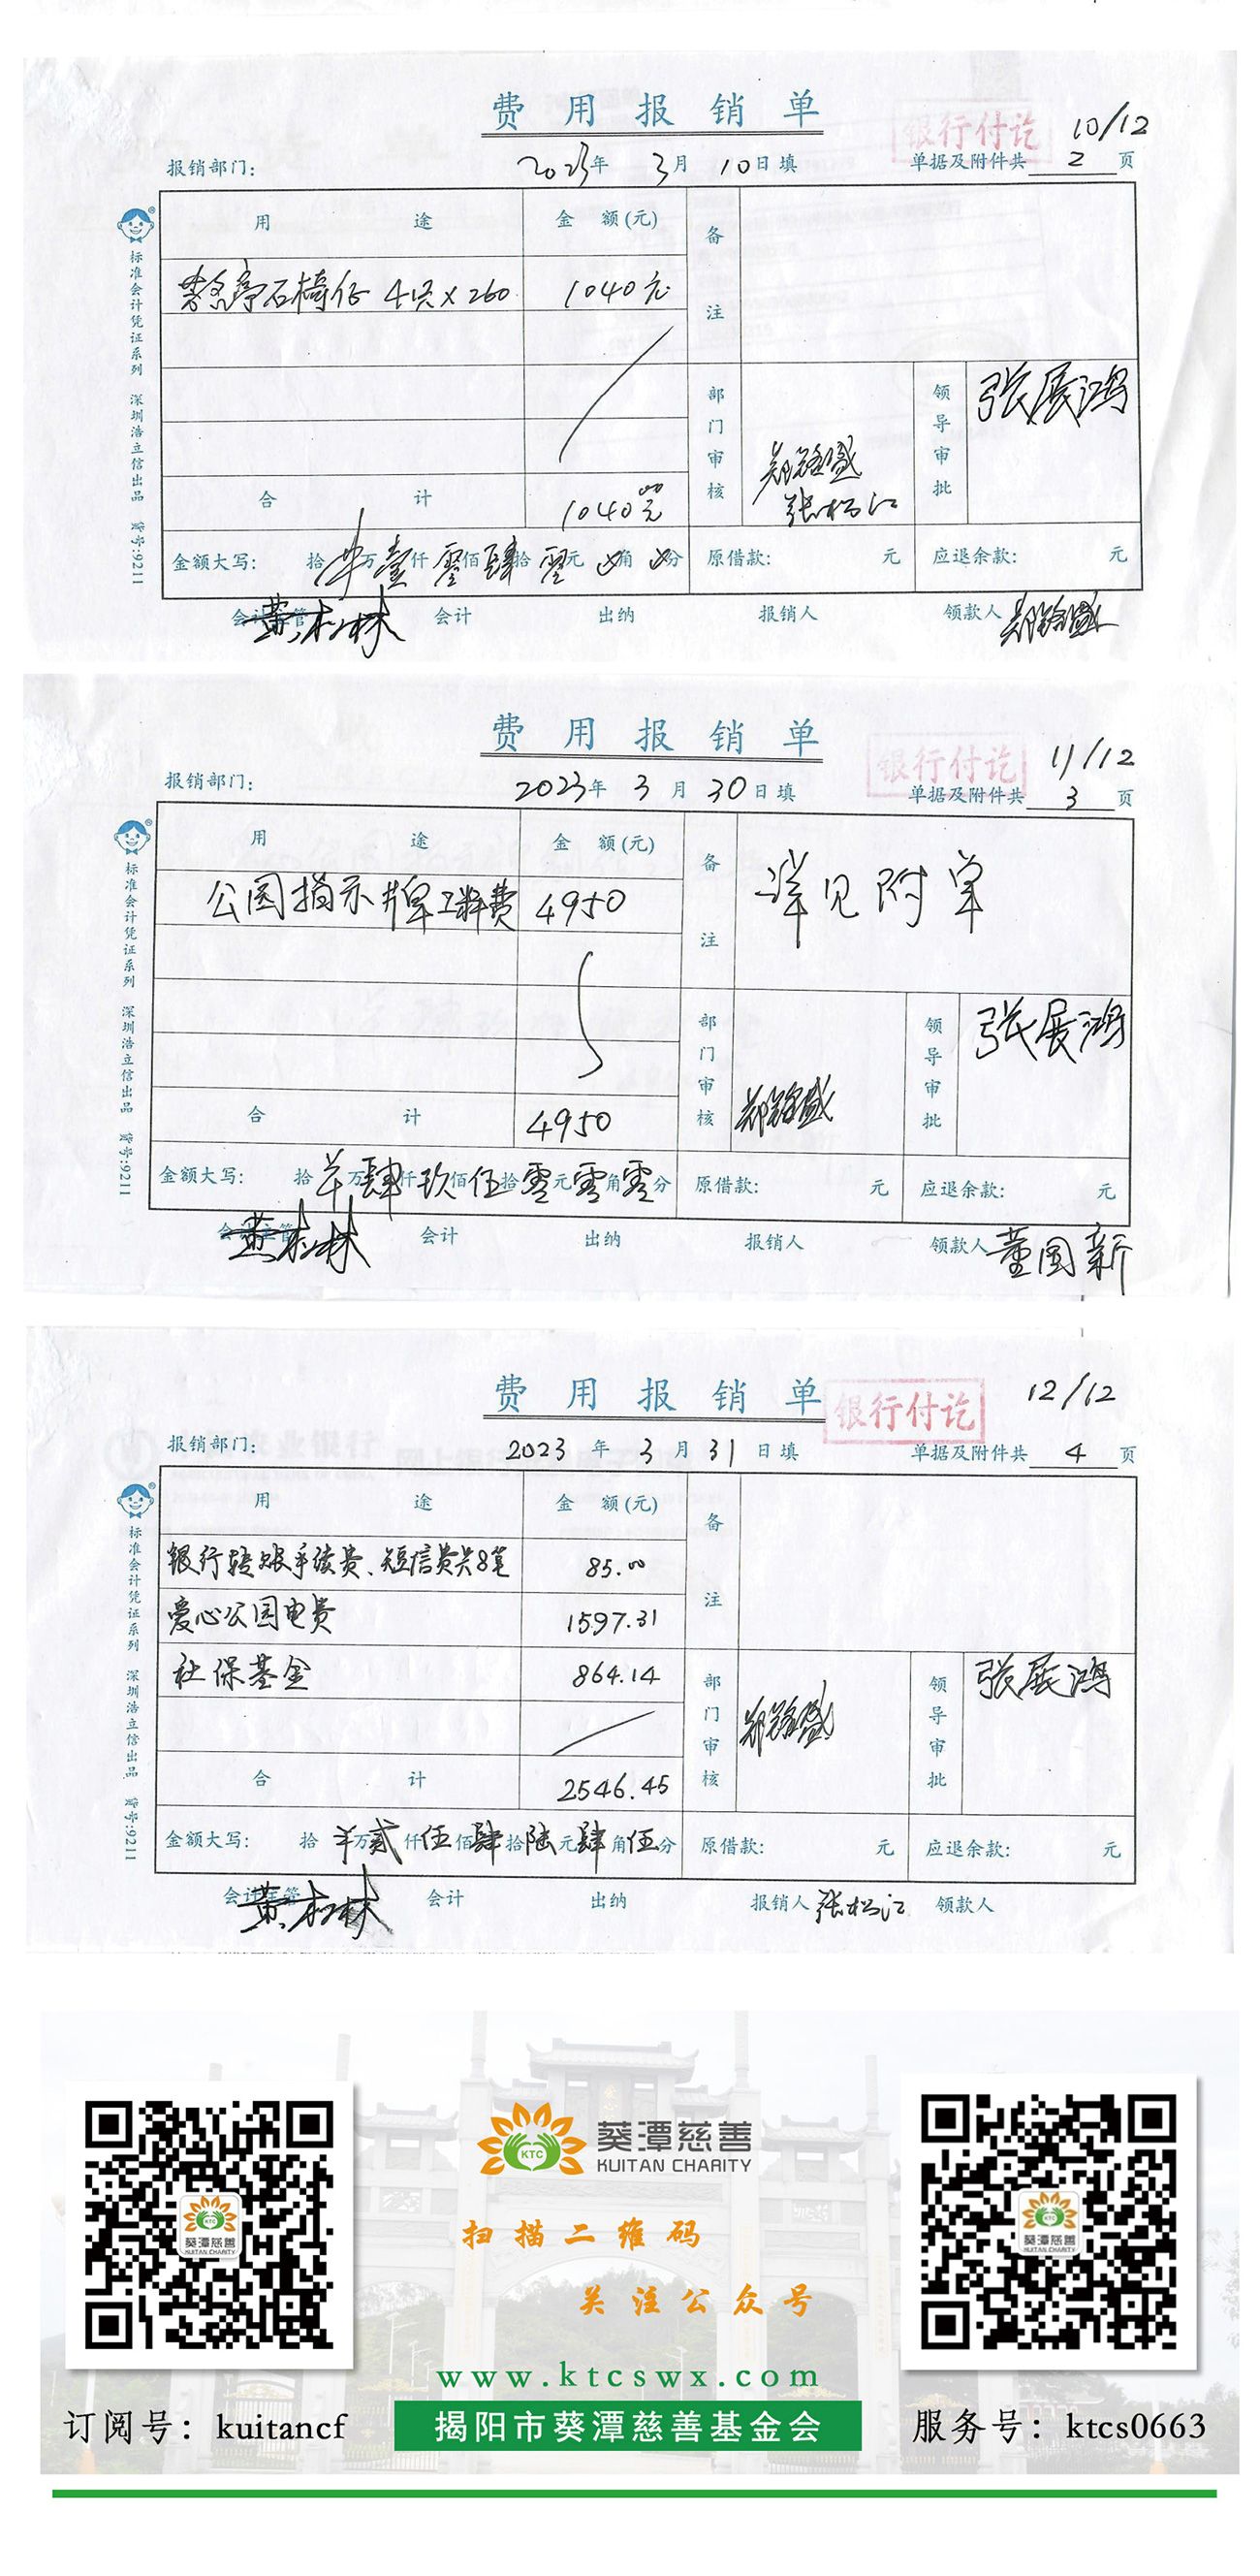 费用报销单
银行付讫
10/12
报销部门:
2023年 3月 10日填
单据及附件共 2 页
用 途
金 额(元)
备注
石椅仔 4块×260
1040元
部门审核
张松江
领导审批
张展鸿
合 计
1040元
金额大写: 拾 万壹仟零佰肆拾零元 角 分
原借款: 元
应退余款: 元
会计主管 黄松林
会计
出纳
报销人
领款人
标准会计凭证系列 深圳浩立信出品 货号:9211
费用报销单
银行付讫
11/12
报销部门:
2023年 3月 30日填
单据及附件共 3 页
用 途
金 额(元)
备注
详见附单
公园指示牌工料费
4950
部门审核
领导审批
张展鸿
合 计
4950
金额大写: 拾 万肆仟玖佰伍拾零元零角零分
原借款: 元
应退余款: 元
会计主管 黄松林
会计
出纳
报销人
领款人 董国新
标准会计凭证系列 深圳浩立信出品 货号:9211
费用报销单
银行付讫
12/12
报销部门:
2023年 3月 31日填
单据及附件共 4 页
用 途
金 额(元)
备注
银行转账手续费、短信费共8笔
85.00
爱心公园电费
1597.31
社保基金
864.14
部门审核
领导审批
张展鸿
合 计
2546.45
金额大写: 拾 万贰仟伍佰肆拾陆元肆角伍分
原借款: 元
应退余款: 元
会计主管 黄松林
会计
出纳
报销人 张松江
领款人
标准会计凭证系列 深圳浩立信出品 货号:9211
KTC
葵潭慈善
KUITAN CHARITY
扫描二维码
关注公众号
www.ktcswx.com
订阅号：kuitancf
揭阳市葵潭慈善基金会
服务号：ktcs0663